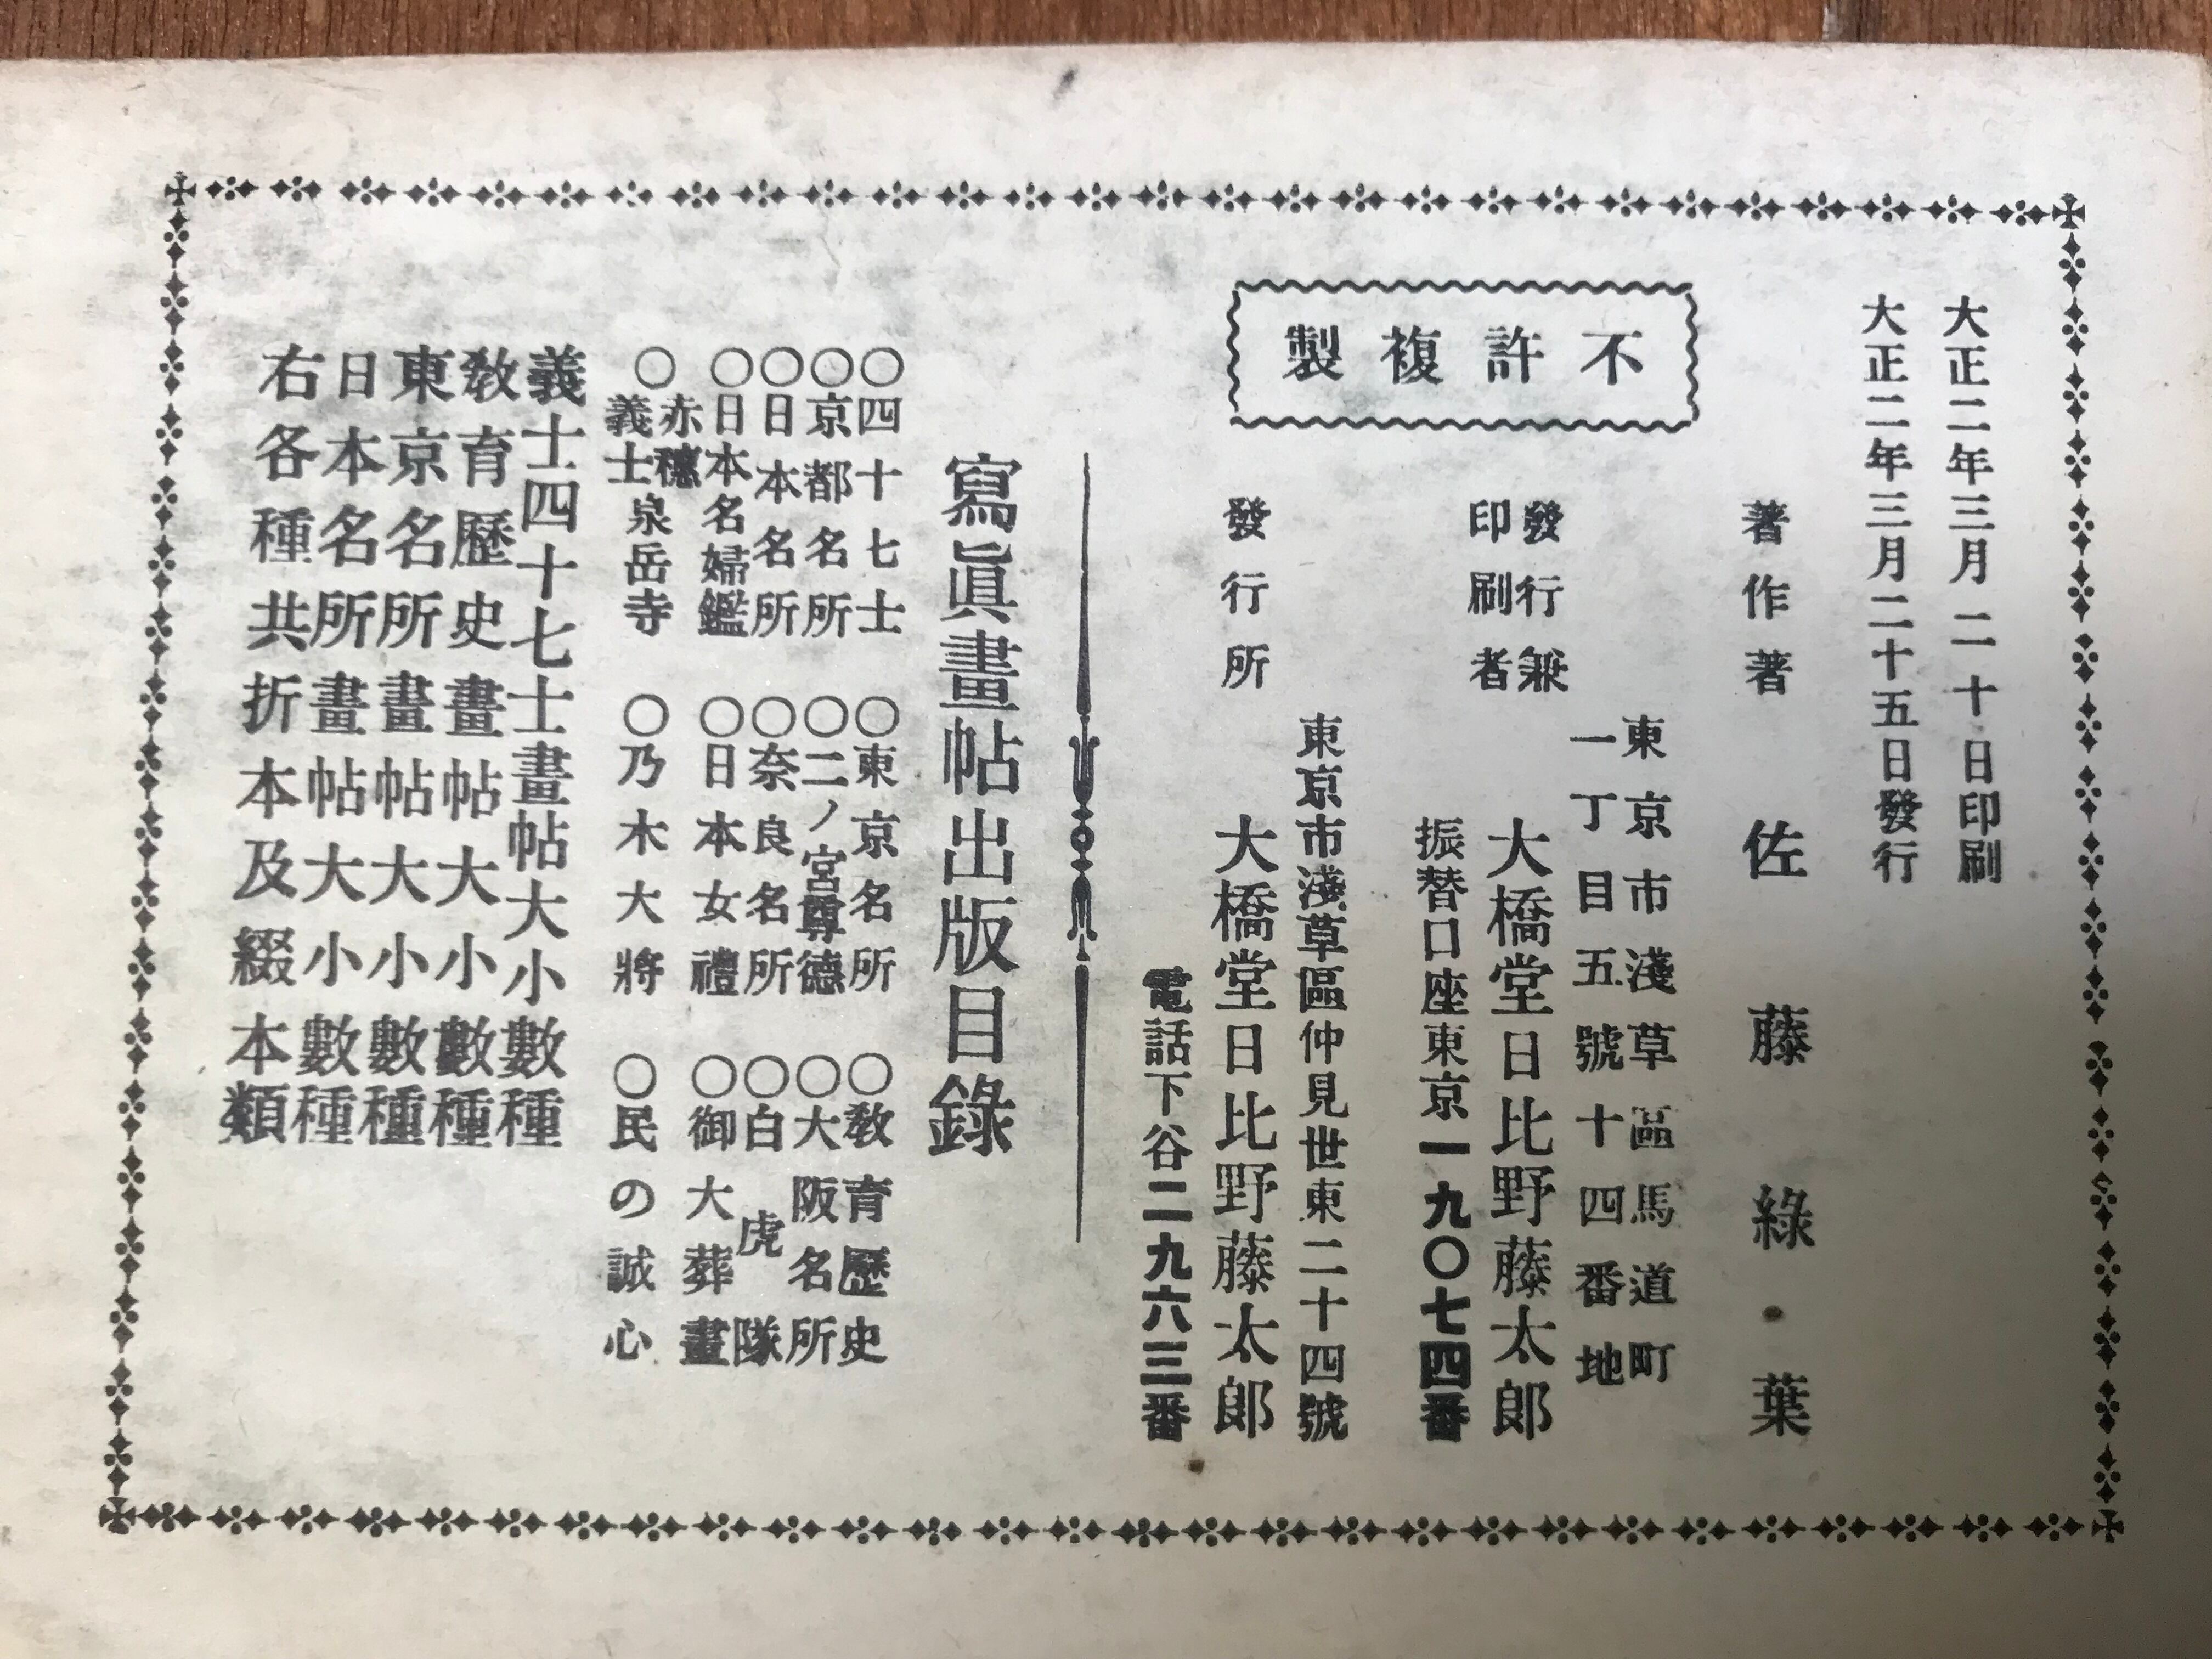 大正二年三月二十日印刷
大正二年三月二十五日發行
不許複製
著作著
佐藤綠葉
東京市淺草區馬道町
一丁目五號十四番地
發行兼
印刷者
大橋堂日比野藤太郎
振替口座東京一九〇七四番
東京市淺草區仲見世東二十四號
發行所
大橋堂日比野藤太郎
電話下谷二九六三番
寫眞畫帖出版目錄
〇四十七士 〇東京名所 〇教育歷史
〇京都名所 〇二ノ宮尊德 〇大阪名所
〇日本名所 〇奈良名所 〇白虎隊
〇日本名婦鑑 〇日本女禮 〇御大葬畫
〇赤穗義士泉岳寺 〇乃木大將 〇民の誠心
義士四十七士畫帖大小數種
教育歷史畫帖大小數種
東京名所畫帖大小數種
日本名所畫帖大小數種
右各種共折本及綴本類